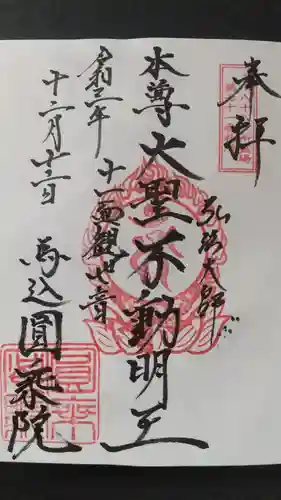 奉拝
弘法大師
本尊 大聖不動明王
十一面観世音
令和三年
十二月十三日
馬込 圓乗院